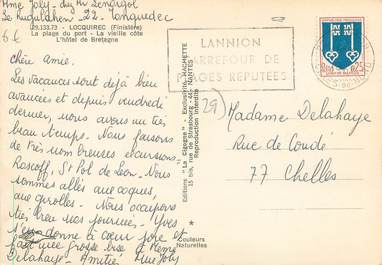 Mme Joly
22 - Languidic
29.133.73 - LOCQUIREC (Finistère)
La plage du port - La vieille côte
L'hôtel de Bretagne
chère amie.
Les vacances sont déjà bien
avancées et depuis vendredi
dernier, nous avons un très
beau temps. Nous faisons
de très nombreuses excursions.
Roscoff, St Pol de Léon. Nous
sommes allés aux coques,
aux girolles. Nous occupons
très bien nos journées. Yves
s'en donne à cœur joie et
fait une grosse bise
Delahaye. Amitiés Mme Joly
Editions "La Cigogne" - Exclusivité HACHETTE
15 bis, rue de Strasbourg - 44 - NANTES
Reproduction interdite
Couleurs
Naturelles
LANNION
CARREFOUR DE
PLAGES REPUTEES
0,25
29)
Madame Delahaye
Rue de Condé
77 Chelles